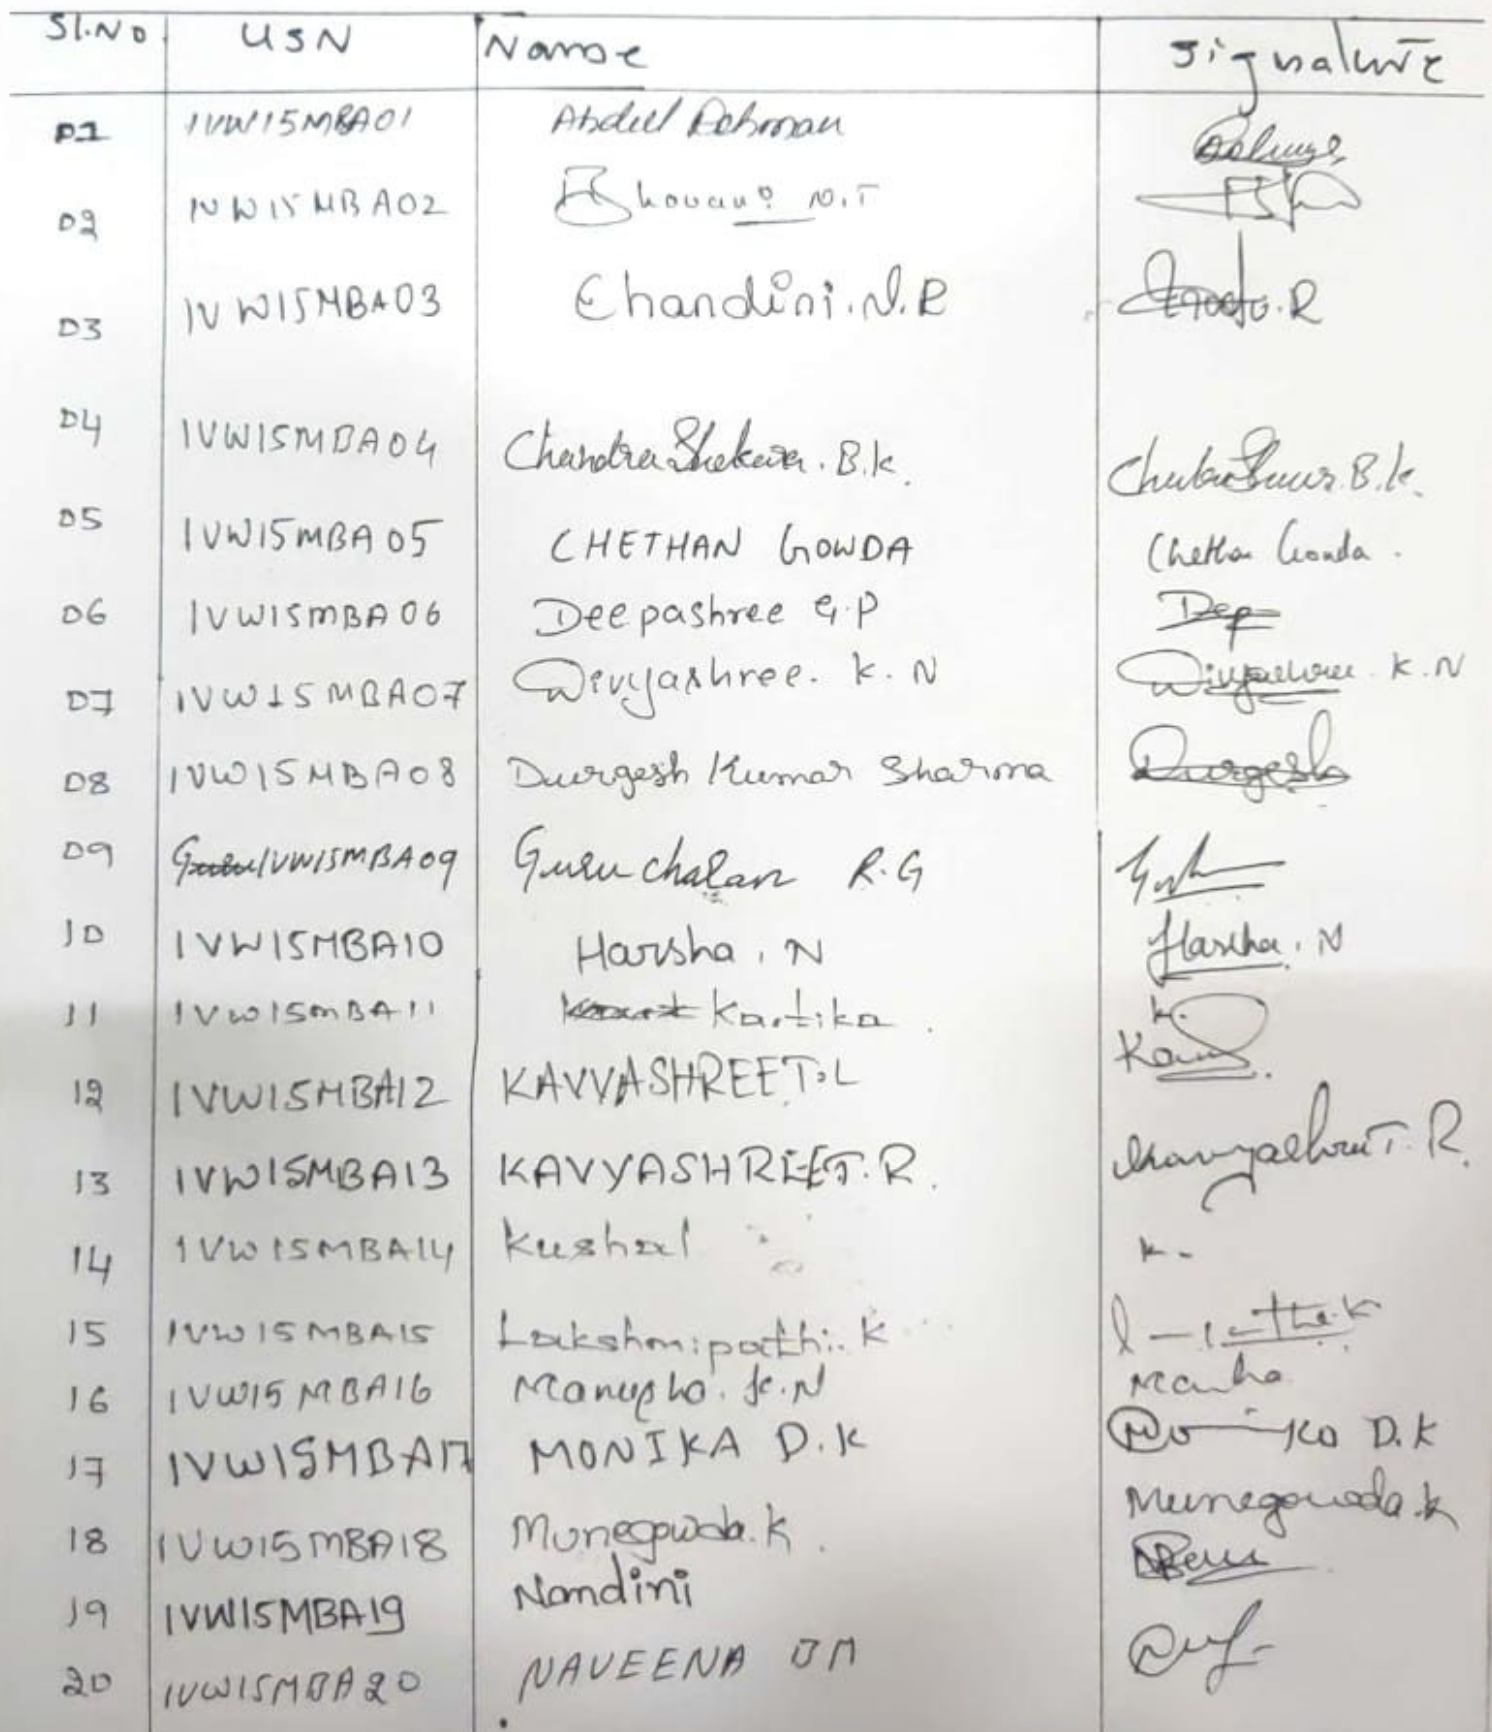 Sl.No USN Name Signature
01 1VW15MBA01 Abdul Rehman
02 1VW15MBA02 Bhovani N.T
03 1VW15MBA03 Chandini.N.R
04 1VW15MBA04 Chandra Shekara. B.K. B.K.
05 1VW15MBA05 CHETHAN GOWDA Chethan Gowda.
06 1VW15MBA06 Deepashree G.P Dep
07 1VW15MBA07 Divyashree. K. N Divyashree. K.N
08 1VW15MBA08 Durgesh Kumar Sharma Durgesh
09 1VW15MBA09 Guru chalan R.G
10 1VW15MBA10 Harsha. N Harsha. N
11 1VW15MBA11 Kartika. K.
12 1VW15MBA12 KAVYASHREE T.L
13 1VW15MBA13 KAVYASHREE T.R. Kavyashree T. R.
14 1VW15MBA14 Kushal K.
15 1VW15MBA15 Lakshmipathi. K
16 1VW15MBA16 Manusha. K.N
17 1VW15MBA17 MONIKA D.K D.K
18 1VW15MBA18 Munegowda.K. Munegowda.K
19 1VW15MBA19 Nandini
20 1VW15MBA20 NAVEENA BM